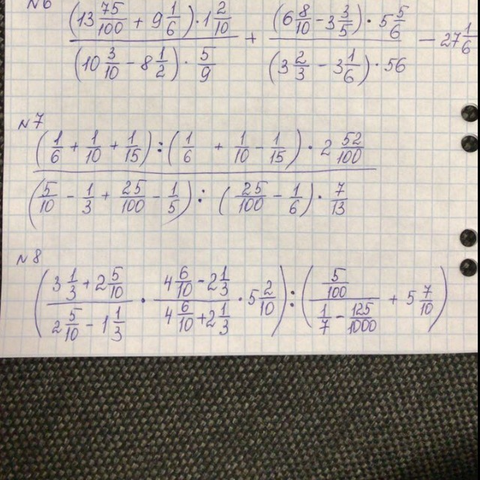 №6
((13 75/100 + 9 1/6) · 1 2/10) / ((10 3/10 - 8 1/2) · 5/9) + ((6 8/10 - 3 3/5) · 5 5/6) / ((3 2/3 - 3 1/6) · 56) - 27 1/6
№7
((1/6 + 1/10 + 1/15) : (1/6 + 1/10 - 1/15) · 2 52/100) / ((5/10 - 1/3 + 25/100 - 1/5) : (25/100 - 1/6) · 7/13)
№8
((3 1/3 + 2 5/10) / (2 5/10 - 1 1/3) · (4 6/10 - 2 1/3) / (4 6/10 + 2 1/3) · 5 2/10) : ((5/100) / (1/7 - 125/1000) + 5 7/10)